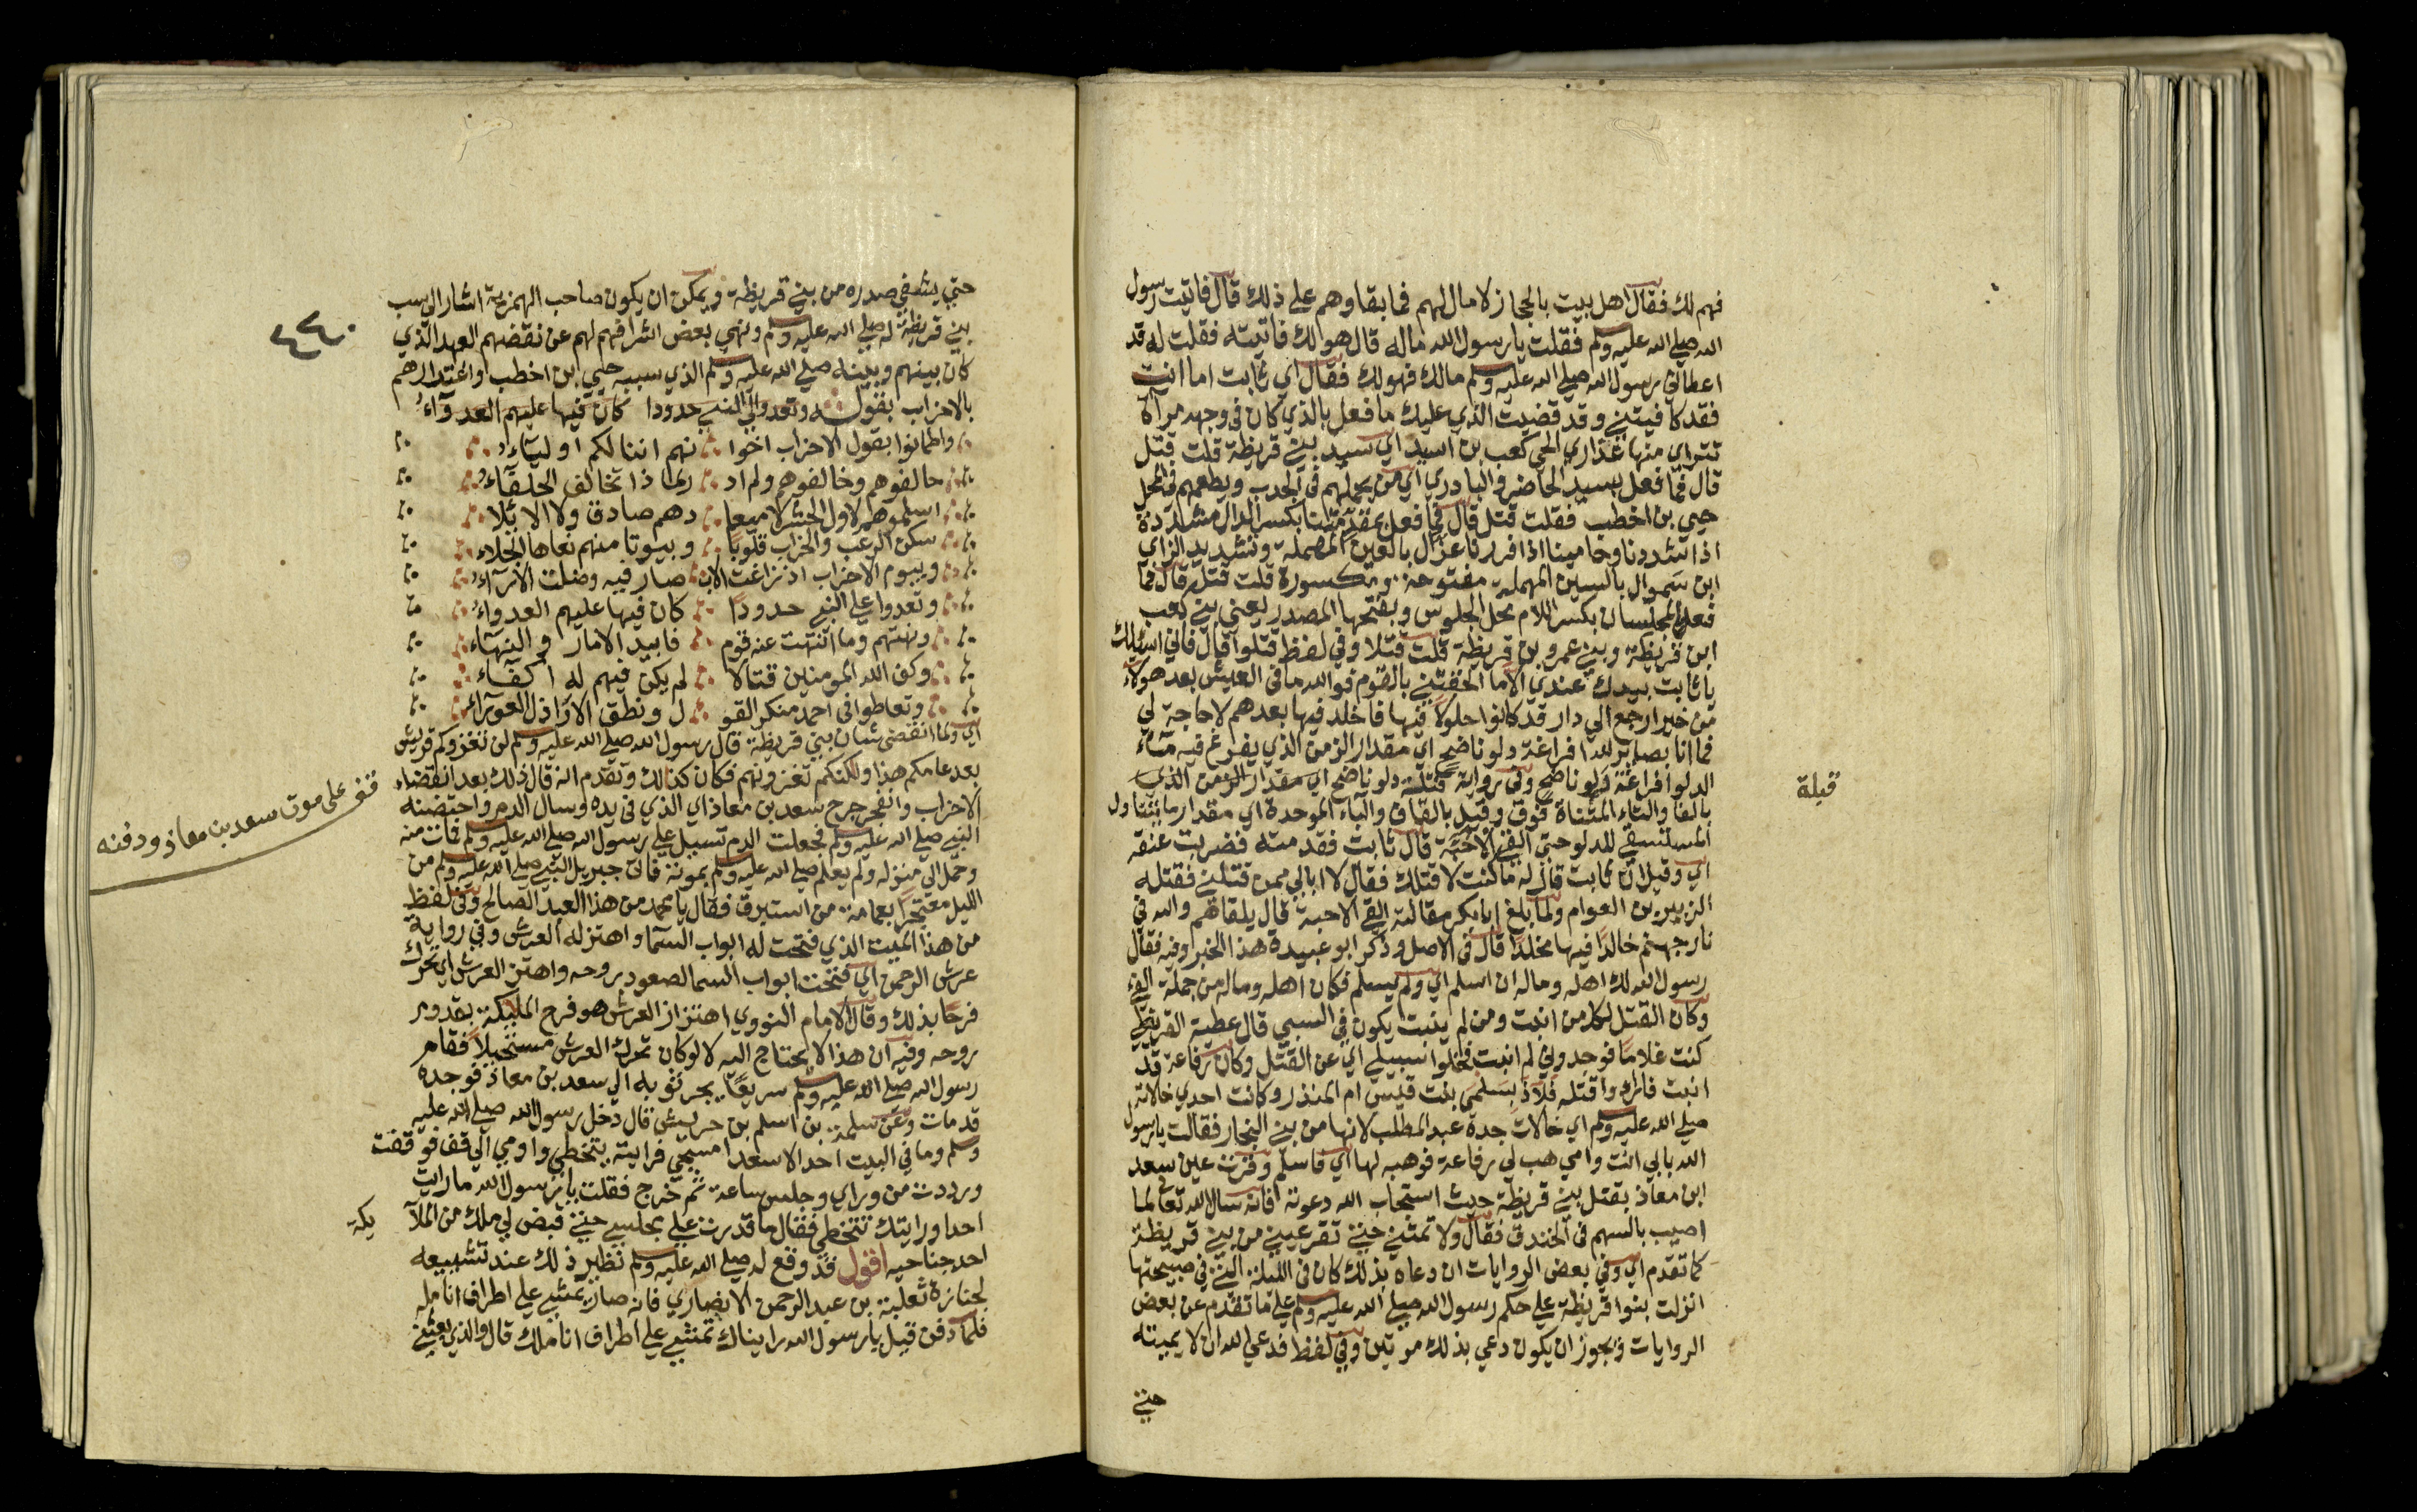 فهم لك فقال اهل بيت بالحجاز لا مال لهم فما بقاوهم على ذلك قال فاتيت رسول
الله صلى الله عليه وسلم فقلت يا رسول الله ماله قال هو لك فاتيته فقلت له قد
اعطاني رسول الله صلى الله عليه وسلم مالك فهو لك فقال اي ثابت اما انت
فقد كافيتني وقد قضيت الذي عليك ما فعل بالذي كان في وجهه مراة
تتراي منها عذاري الحي كعب بن اسيد اي سيد بني قريظة قلت قتل
قال فما فعل بسيد الحاضر والبادي اي من يحملهم في الجدب ويطعمهم في المحل
حيي بن اخطب فقلت قتل قال فما فعل بمقدمتنا بكسر الدال مشددة
اذا شددنا وحامينا اذا فررنا عزال بالعين المهملة وتشديد الزاي
ابن سموال بالسين المهملة مفتوحة ومكسورة قلت قتل قال فما
فعل المجلسان بكسر اللام محل الجلوس وبفتحها المصدر يعني بني كعب
ابن قريظة وبني عمرو بن قريظة قلت قتلا وفي لفظ قتلوا قال فاني اسئلك
يا ثابت بيدك عندي الا ما الحقتني بالقوم فوالله ما في العيش بعد هولاء
من خير ارجع الي دار قد كانوا حلولا فيها فاخلد فيها بعدهم لا حاجة لي
فما انا بصابر لله افراغة دلو ناضح اي مقدار الزمن الذي يفرغ فيه ماء
الدلو افراغة دلو ناضح وفي رواية فتلة دلو ناضح اي مقدار الزمن الذي
بالفا والتاء المثناة فوق وقيل بالقاف والباء الموحدة اي مقدار ما يتناول
المستسقي للدلو حتي القي الاحبة قال ثابت فقدمته فضربت عنقه
اي وقيل ان ثابت قال له ما كنت لا قتلك فقال لا ابالي ممن قتلني فقتله
الزبير بن العوام ولما بلغ ابا بكر مقالته القي الاحبة قال يلقاهم والله في
نار جهنم خالدا فيها مخلدا قال في الاصل وذكر ابو عبيدة هذا الخبر وفيه فقال
رسول الله لك اهله وماله ان اسلم اي ولم يسلم فكان اهله وماله من جملة الفي
وكان القتل لكل من انبت ومن لم ينبت يكون في السبي قال عطية القرظي
كنت غلاما فوجدوني لم انبت فخلوا سبيلي اي عن القتل وكان رفاعة قد
انبت فارادوا قتله فلاذ بسلمي بنت قيس ام المنذر وكانت احدي خالاته
صلى الله عليه وسلم اي خالات جده عبد المطلب لانها من بني النجار فقالت يا رسول
الله بابي انت وامي هب لي رفاعة فوهبه لها اي فاسلم وقرت عين سعد
ابن معاذ بقتل بني قريظة حيث استجاب الله دعوته فانه سال الله تعالى لما
اصيب بالسهم في الخندق فقال ولا تمتني حتي تقر عيني من بني قريظة
كما تقدم اي وفي بعض الروايات ان دعاه بذلك كان في الليلة التي في صبيحتها
انزلت بنوا قريظة على حكم رسول الله صلى الله عليه وسلم على ما تقدم عن بعض
الروايات ويجوز ان يكون دعي بذلك مرتين وفي لفظ فدعي الله ان لا يميته
حتي
قبلة
٤٤٠
حتي يشفي صدره من بني قريظة ويمكن ان يكون صاحب الهمزية اشار الي سب
بني قريظة له صلى الله عليه وسلم ونهي بعض اشرافهم لهم عن نقضهم العهد الذي
كان بينهم وبينه صلى الله عليه وسلم الذي سببه حيي ابن اخطب واغترارهم
بالاحزاب بقوله وتعدوا الي النبي حدودا كان فيها عليهم العدواء
واطمانوا بقول الاحزاب اخوا نهم اننا لكم اولياء
حالفوهم وخالفوهم ولم اد ر لماذا تخالف الحلفاء
اسلموهم لاول الحشر لا ميعا دهم صادق ولا الايلاء
سكن الرعب والخراب قلوبا وبيوتا منهم نعاها الجلاء
وبيوم الاحزاب اذ زاغت الاب صار فيه وضلت الاراء
وتعدوا على النبي حدودا كان فيها عليهم العدواء
ونهتهم وما انتهت عنه قوم فابيد الامار والنهاء
وكفي الله المومنين قتالا لم يكن فيهم له اكفاء
وتعاطوا في احمد منكر القو ل ونطق الاراذل العوراء
اي ولما انقضى شان بني قريظة قال رسول الله صلى الله عليه وسلم لن تغزوكم قريش
بعد عامكم هذا ولكنكم تغزونهم فكان كذلك وتقدم انه قال ذلك بعد انقضاء
الاحزاب وانفجر جرح سعد بن معاذ اي الذي في يده وسال الدم واحتضنه
النبي صلى الله عليه وسلم فجعلت الدم تسيل على رسول الله صلى الله عليه وسلم فمات منه
وحمل الي منزله ولم يعلم صلى الله عليه وسلم بموته فاتى جبريل النبي صلى الله عليه وسلم من
الليل معتجرا بعمامة من استبرق فقال يا محمد من هذا العبد الصالح وفي لفظ
من هذا الميت الذي فتحت له ابواب السما واهتز له العرش وفي رواية
عرش الرحمن اي فتحت ابواب السما لصعود روحه واهتز العرش اي تحرك
فرحا بذلك وقال الامام النووي اهتزاز العرش هو فرح الملئكة بقدوم
روحه وفيه ان هذا لا يحتاج اليه لا لو كان تحرك العرش مستحيلا فقام
رسول الله صلى الله عليه وسلم سريعا يجر ثوبه الي سعد بن معاذ فوجده
قد مات وعن سلمة بن اسلم بن حريش قال دخل رسول الله صلى الله عليه
وسلم وما في البيت احد الا سعدا مسجي فرايته يتخطي واومي الي قف فوقفت
ورددت من وراي وجلس ساعة ثم خرج فقلت يا رسول الله ما رايت
احدا ورايتك تتخطي فقال ما قدرت على مجلسي حتي قبض لي ملك من الملآ
احد جناحيه اقول قد وقع له صلى الله عليه وسلم نظير ذلك عند تشييعه
لجنازة ثعلبة بن عبد الرحمن الانصاري فانه صار يمشي على اطراف انامله
فلما دفن قيل يا رسول الله رايناك تمشي على اطراف اناملك قال والذي بعثني
يكة
قف على موت سعد بن معاذ ودفنه